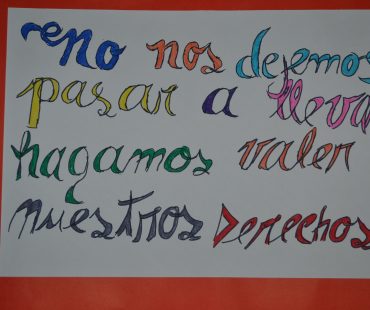 ~No nos dejemos
pasar a lleva
hagamos valer
nuestros Derechos